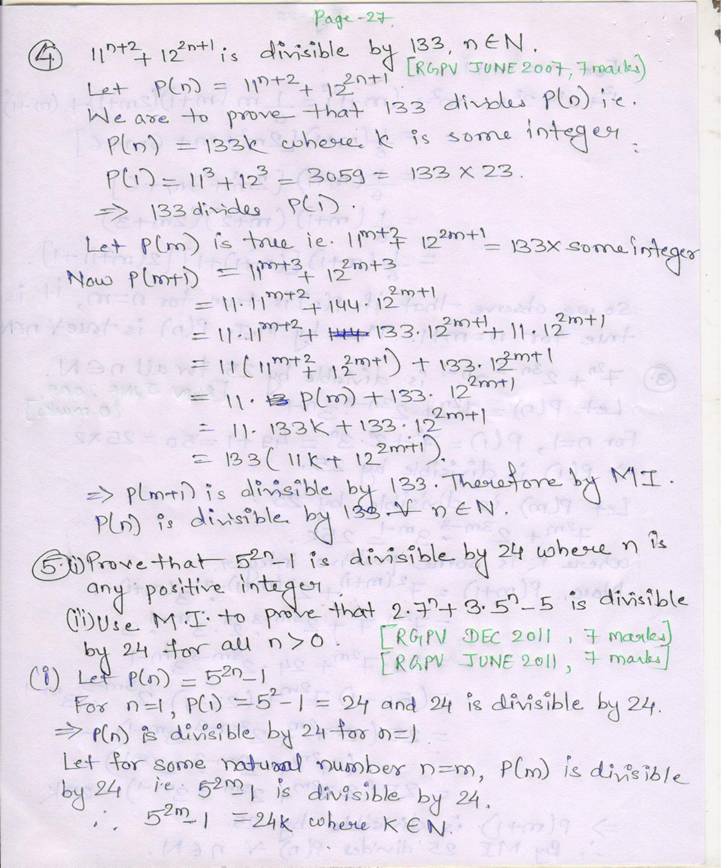 Page-27
④ 11^{n+2} + 12^{2n+1} is divisible by 133, n∈N.
[RGPV JUNE 2007, 7 marks]
Let P(n) = 11^{n+2} + 12^{2n+1}
We are to prove that 133 divides P(n) i.e.
P(n) = 133k where k is some integer.
P(1) = 11^3 + 12^3 = 3059 = 133 × 23.
⇒ 133 divides P(1).
Let P(m) is true ie. 11^{m+2} + 12^{2m+1} = 133× some integer
Now P(m+1) = 11^{m+3} + 12^{2m+3}
= 11·11^{m+2} + 144·12^{2m+1}
= 11·11^{m+2} + 133·12^{2m+1} + 11·12^{2m+1}
= 11(11^{m+2} + 12^{2m+1}) + 133·12^{2m+1}
= 11· P(m) + 133· 12^{2m+1}
= 11· 133k + 133·12^{2m+1}
= 133(11k + 12^{2m+1}).
⇒ P(m+1) is divisible by 133. Therefore by M I.
P(n) is divisible by 133. ∀ n∈N.
⑤·(i) Prove that 5^{2n}-1 is divisible by 24 where n is
any positive integer.
(ii) Use M.I. to prove that 2·7^n + 3·5^n - 5 is divisible
by 24 for all n>0. [RGPV DEC 2011, 7 marks]
[RGPV JUNE 2011, 7 marks]
(i) Let P(n) = 5^{2n}-1
For n=1, P(1) = 5^2-1 = 24 and 24 is divisible by 24.
⇒ P(n) is divisible by 24 for n=1
Let for some natural number n=m, P(m) is divisible
by 24 i.e 5^{2m}-1 is divisible by 24.
∴ 5^{2m}-1 = 24k where K∈N.